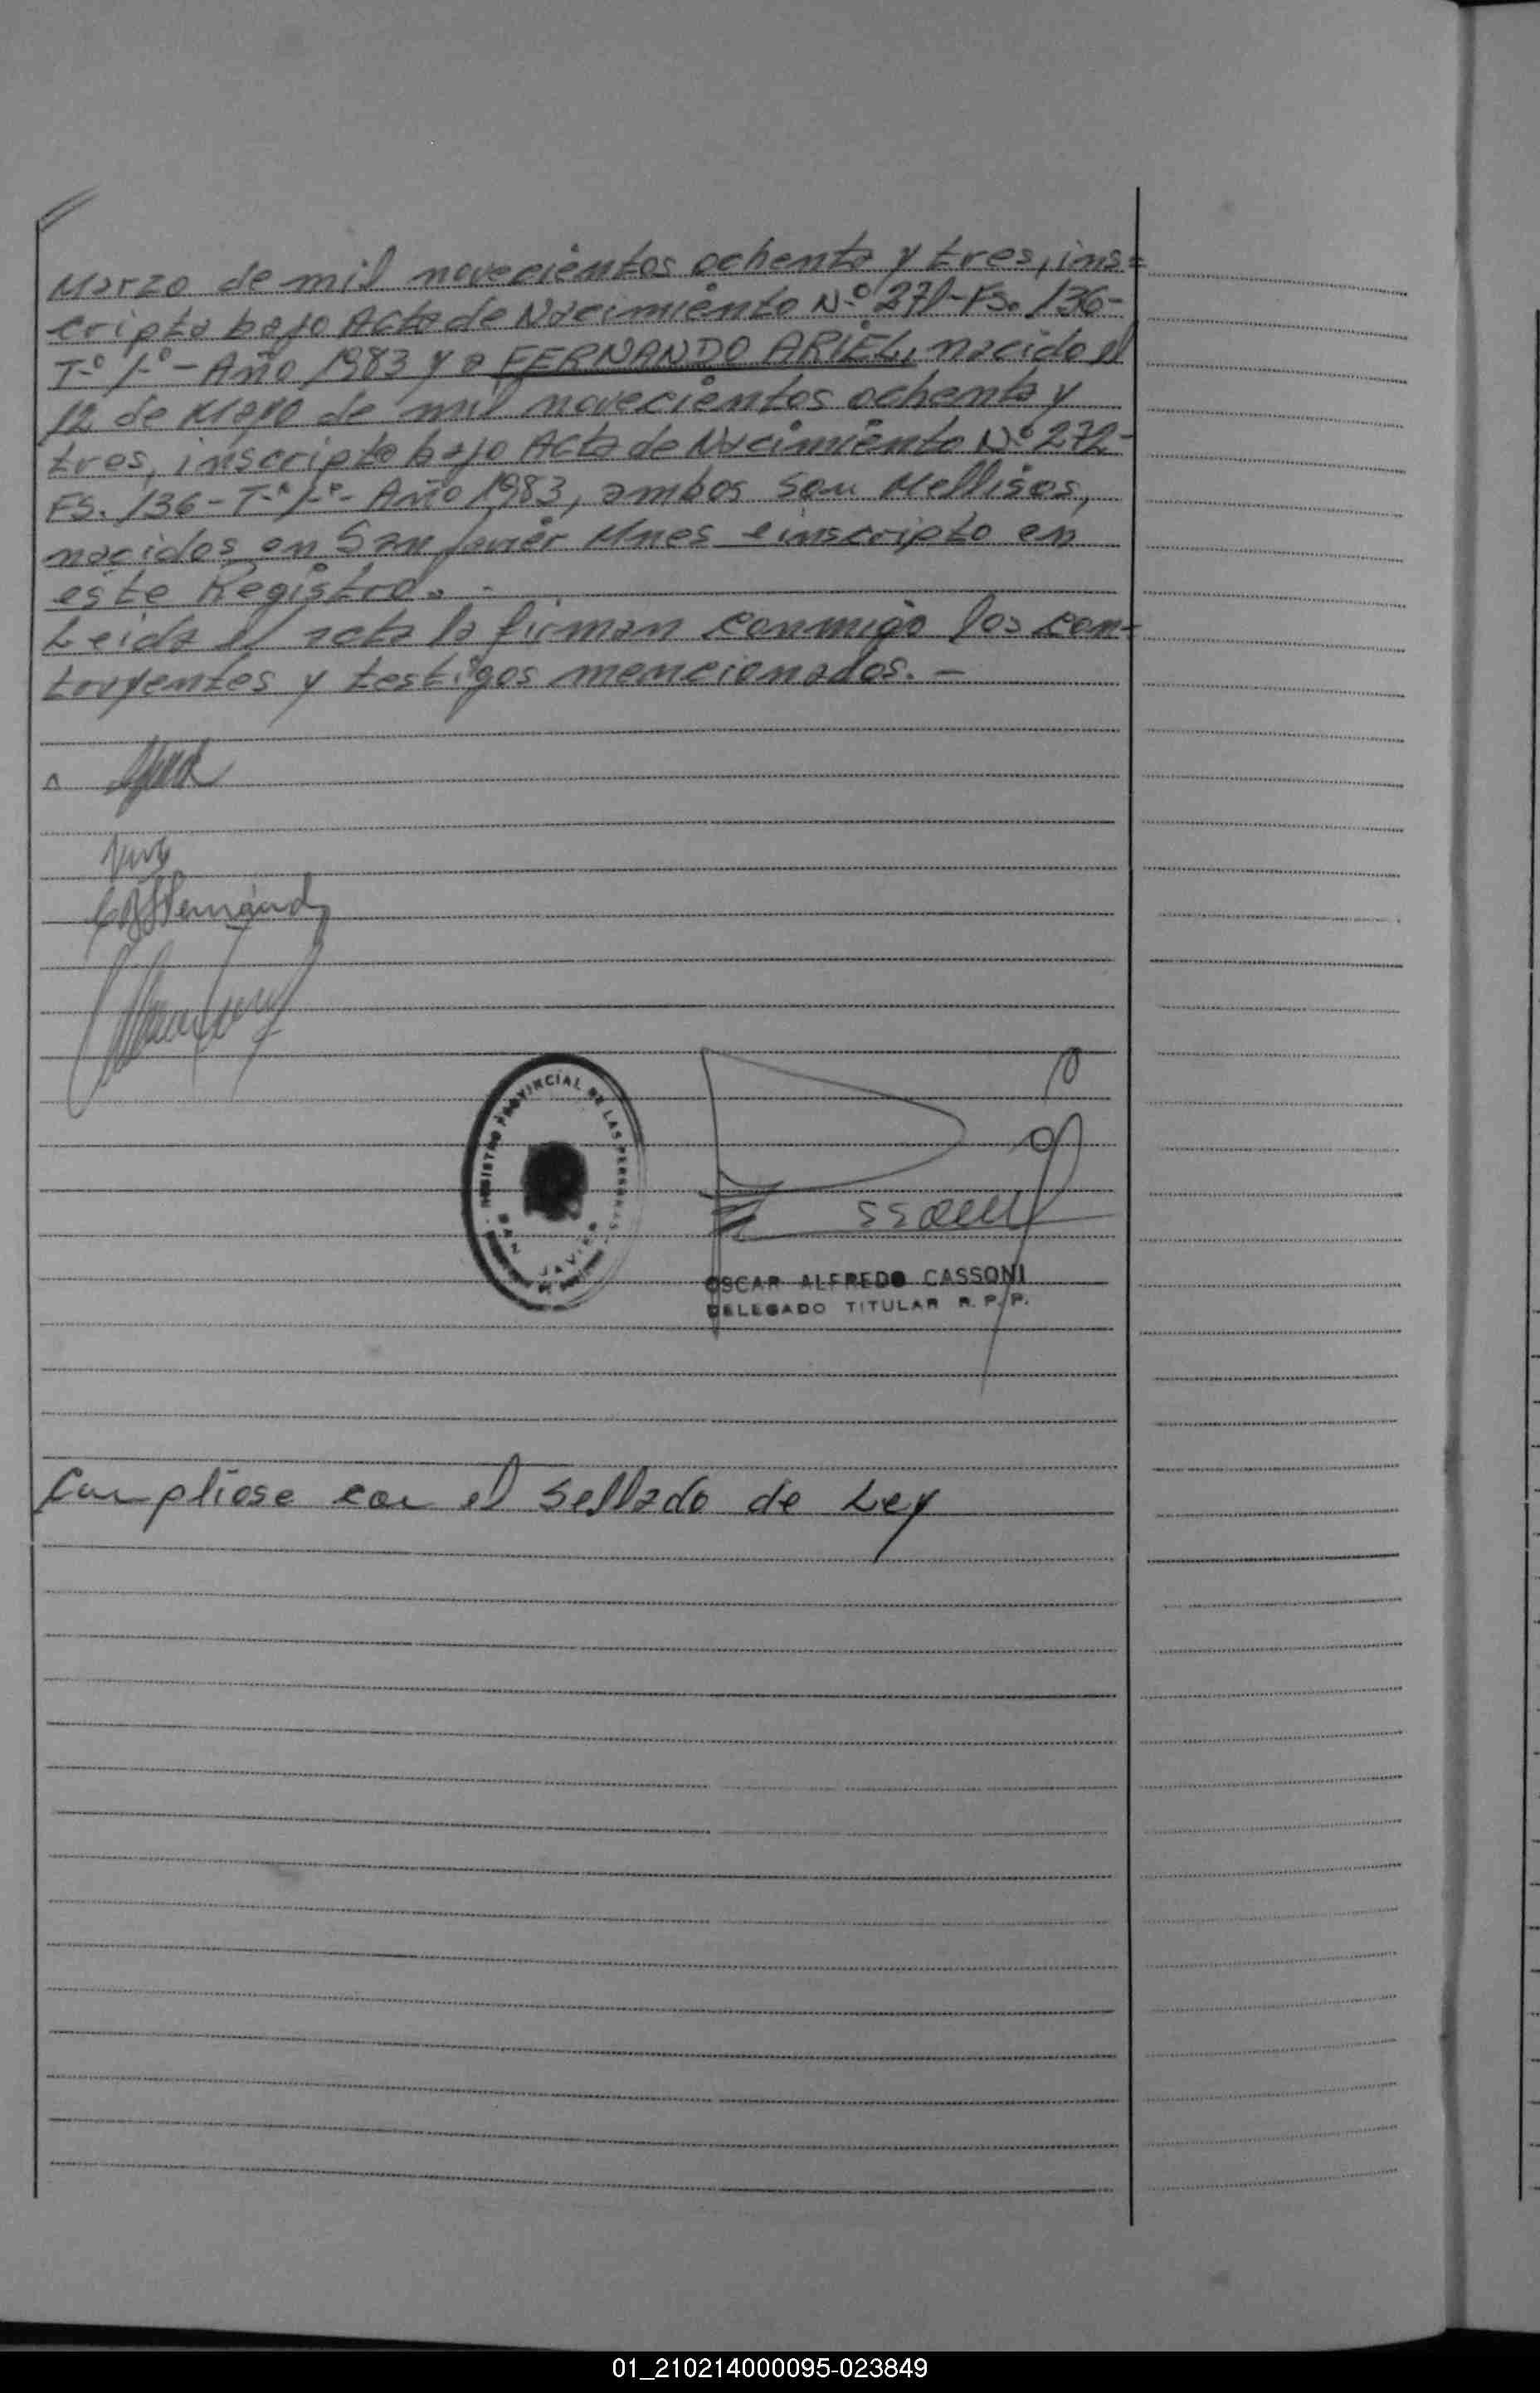 Marzo de mil novecientos ochenta y tres, ins=
cripto bajo Acta de Nacimiento Nº 271-FS. 136-
Tº 1º - Año 1983 y a FERNANDO ARIEL, nacido el
12 de Mayo de mil novecientos ochenta y
tres, inscripto bajo Acta de Nacimiento Nº 272-
FS. 136 - Tº 1º - Año 1983, ambos son Mellisos,
nacidos en San Javier Mnes e inscripto en
este Registro. -
Leida el acta la firman conmigo los con=
trayentes y testigos mencionados. -
REGISTRO PROVINCIAL DE LAS PERSONAS
SAN JAVIER
OSCAR ALFREDO CASSONI
DELEGADO TITULAR R. P. P.
Cumpliose con el Sellado de Ley
01_210214000095-023849